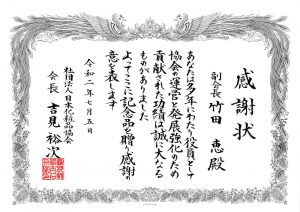 感謝状
副会長 竹田 恵殿
あなたは多年にわたり役員として
協会の運営と発展強化のため
貢献された功績は誠に大なる
ものがありました
よってここに記念品を贈り感謝の
意を表します
令和二年七月五日
社団法人日本化粧品協会
会長 吉見裕次